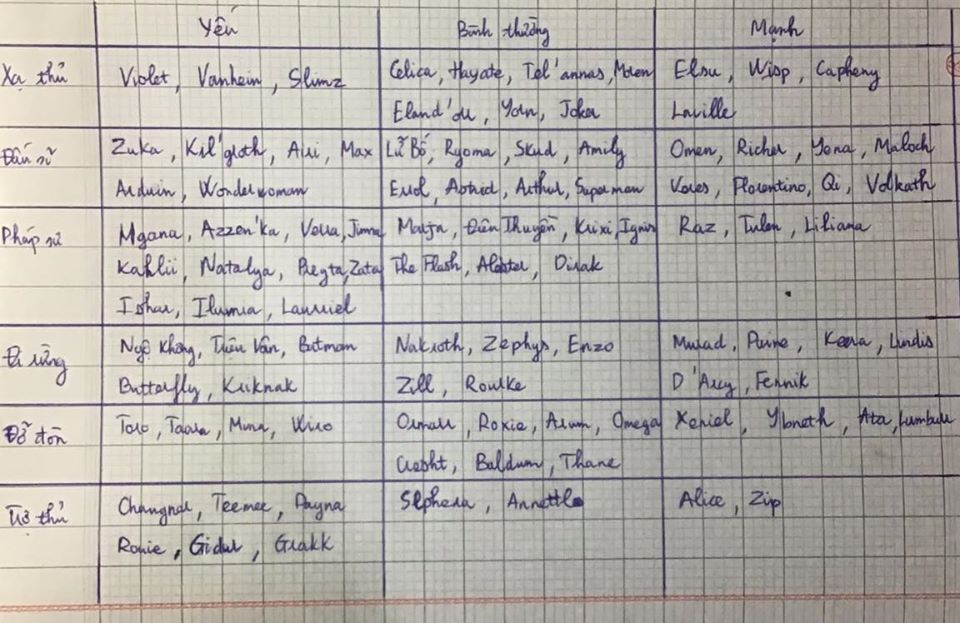 Yếu Bình thường Mạnh
Xạ thủ Violet, Vanhein, Slimz Celica, Hayate, Tel'annas, Moren Elsu, Wisp, Capheny
Eland'orr, Yorn, Joker Laville
Đấu sĩ Zuka, Kil'groth, Airi, Max Lữ Bố, Ryoma, Skud, Amily Omen, Richter, Yena, Maloch
Arduin, Wonderwoman Errol, Astrid, Arthur, Superman Veres, Florentino, Qi, Volkath
Pháp sư Mgana, Azzen'ka, Vera, Jinna Marja, Điêu Thuyền, Krixi, Ignis Raz, Tulen, Liliana
Kahlii, Natalya, Preyta, Zata The Flash, Aleister, Dirak
Ishar, Ilumia, Lauriel
Đi rừng Ngộ Không, Triệu Vân, Batman Nakroth, Zephys, Enzo Murad, Paine, Keera, Lindis
Butterfly, Kriknak Zill, Rourke D'Arcy, Fennik
Đỡ đòn Toro, Taara, Mina, Wiro Ormarr, Roxie, Arum, Omega Xeniel, Ybneth, Ata, Lumburr
Cresht, Baldum, Thane
Trợ thủ Chaugnar, Teemee, Payna Sephera, Annette Alice, Zip
Rouie, Gidur, Grakk